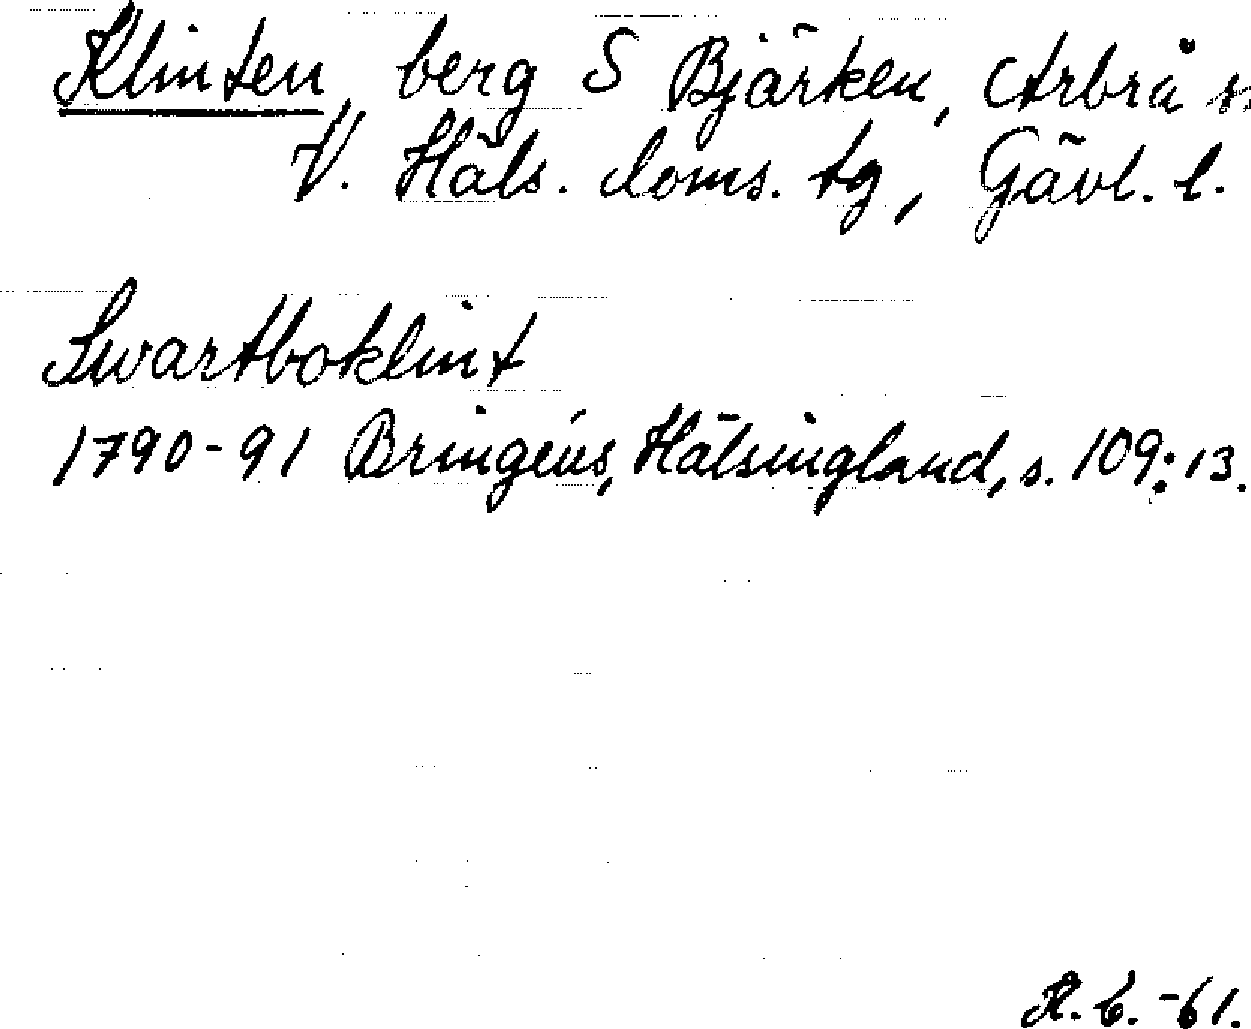 Klinten, berg S Bjärken, Arbrå sn
V. Häls. doms. tg, Gävl. l.
Swartboklint
1790-91 Bringéus, Hälsingland, s. 109:13.
R. C. -61.